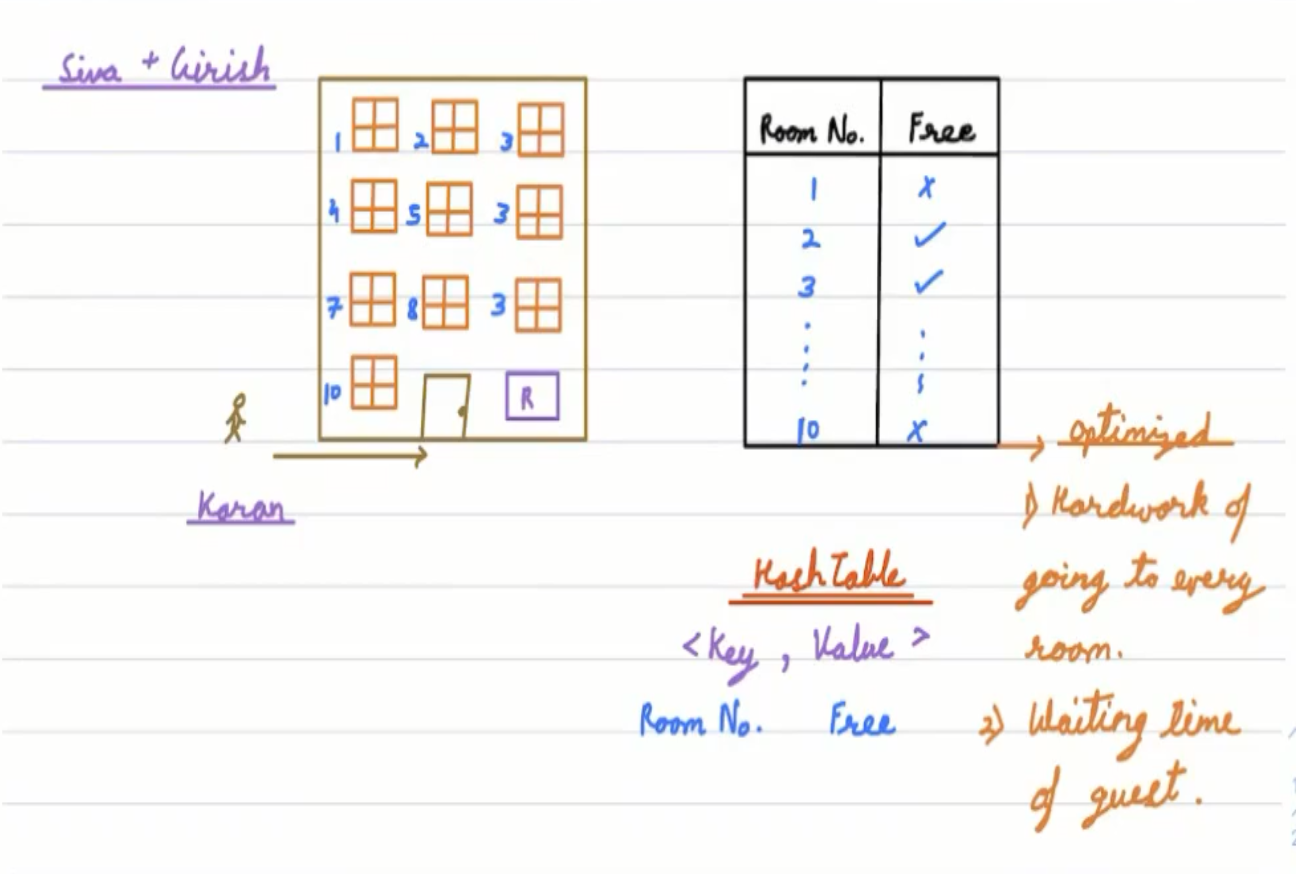 Siva + Girish
1 2 3
4 5 3
7 8 3
10 R
Karan
Room No. Free
1 x
2 ✓
3 ✓
10 x
Optimized
1) Hardwork of
going to every
room.
2) Waiting time
of guest.
HashTable
<Key, Value>
Room No. Free